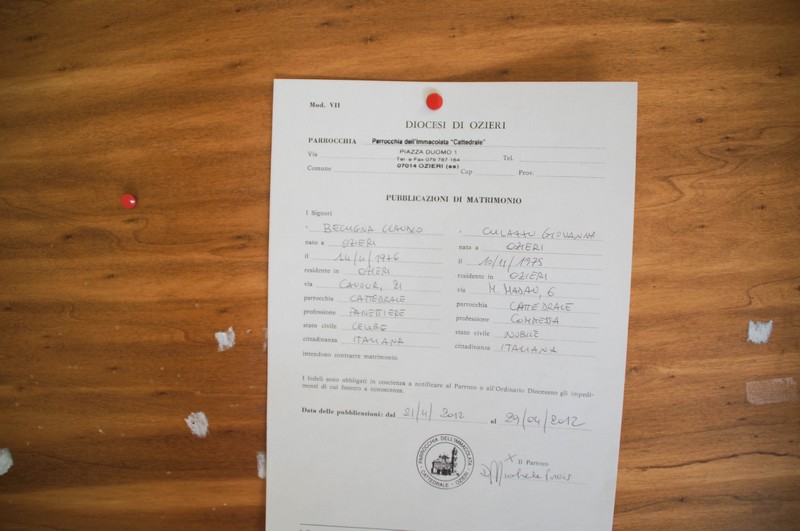 Mod. VII
DIOCESI DI OZIERI
PARROCCHIA Parrocchia dell'Immacolata "Cattedrale"
Via PIAZZA DUOMO 1 Tel.
Tel e Fax 079 787 164
Comune 07014 OZIERI (ss) Cap Prov.
PUBBLICAZIONI DI MATRIMONIO
I Signori
CLAUDIO CULAZZU GIOVANNA
nato a OZIERI nata a OZIERI
il 1976 il 10/11/1975
residente in OZIERI residente in OZIERI
via CAVOUR, 21 via M. MADAU, 6
parrocchia CATTEDRALE parrocchia CATTEDRALE
professione PANETTIERE professione COMMESSA
stato civile CELIBE stato civile NUBILE
cittadinanza ITALIANA cittadinanza ITALIANA
intendono contrarre matrimonio.
I fedeli sono obbligati in coscienza a notificare al Parroco o all'Ordinario Diocesano gli impedi-
menti di cui fossero a conoscenza.
Data delle pubblicazioni: dal 21/4/2012 al 29/04/2012
PARROCCHIA DELL'IMMACOLATA
CATTEDRALE - OZIERI
X Il Parroco